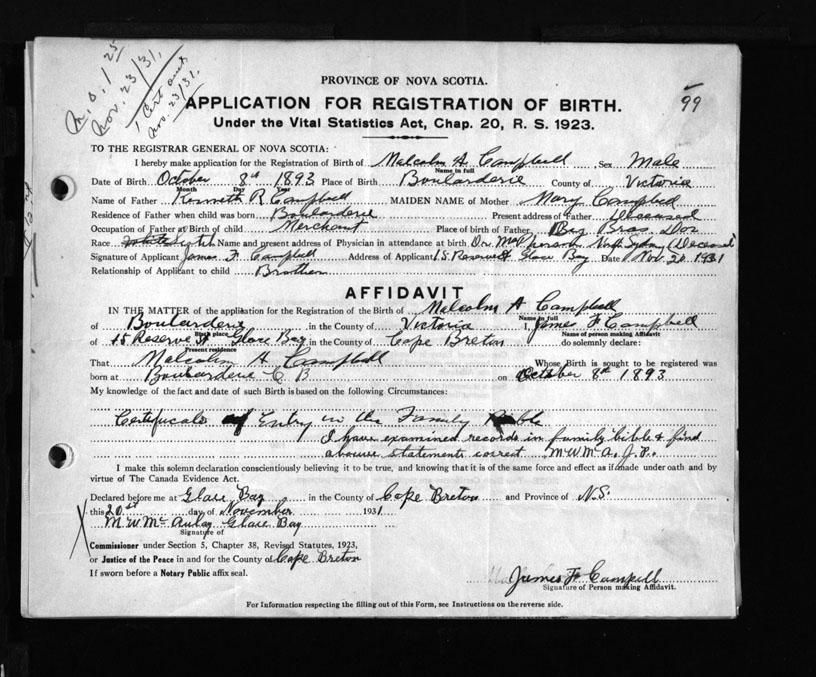 M.O. 1 25
Nov. 23/31.
1 Cert
Nov. 23/31.
99
PROVINCE OF NOVA SCOTIA.
APPLICATION FOR REGISTRATION OF BIRTH.
Under the Vital Statistics Act, Chap. 20, R. S. 1923.
TO THE REGISTRAR GENERAL OF NOVA SCOTIA:
I hereby make application for the Registration of Birth of Malcolm A Campbell Sex Male
Name in full
Date of Birth October 8th 1893 Place of Birth Boularderie County of Victoria
Month Day Year
Name of Father Kenneth R Campbell MAIDEN NAME of Mother Mary Campbell
Residence of Father when child was born Boularderie Present address of Father Deceased
Occupation of Father at Birth of child Merchant Place of birth of Father Big Bras Dor
Race White Name and present address of Physician in attendance at birth Dr. McPherson North Sydney (Deceased)
Signature of Applicant James F Campbell Address of Applicant 15 Reserve St Glace Bay Date Nov. 20 1931
Relationship of Applicant to child Brother
AFFIDAVIT
IN THE MATTER of the application for the Registration of the Birth of Malcolm A Campbell
Name in full
of Boularderie in the County of Victoria I, James F Campbell
Birth place Name of person making Affidavit
of 15 Reserve St Glace Bay in the County of Cape Breton do solemnly declare:
Present residence
That Malcolm A Campbell Whose Birth is sought to be registered was
born at Boularderie C B on October 8th 1893
My knowledge of the fact and date of such Birth is based on the following Circumstances:
Certificate of Entry in the Family Bible
I have examined records in family bible & find
above statements correct M.W.McA. J.P.
I make this solemn declaration conscientiously believing it to be true, and knowing that it is of the same force and effect as if made under oath and by
virtue of The Canada Evidence Act.
Declared before me at Glace Bay in the County of Cape Breton and Province of N.S.
this 20st day of November 1931
M W McAulay Glace Bay
Signature of
Commissioner under Section 5, Chapter 38, Revised Statutes, 1923,
or Justice of the Peace in and for the County of Cape Breton
If sworn before a Notary Public affix seal.
James F Campbell
Signature of Person making Affidavit.
For Information respecting the filling out of this Form, see Instructions on the reverse side.